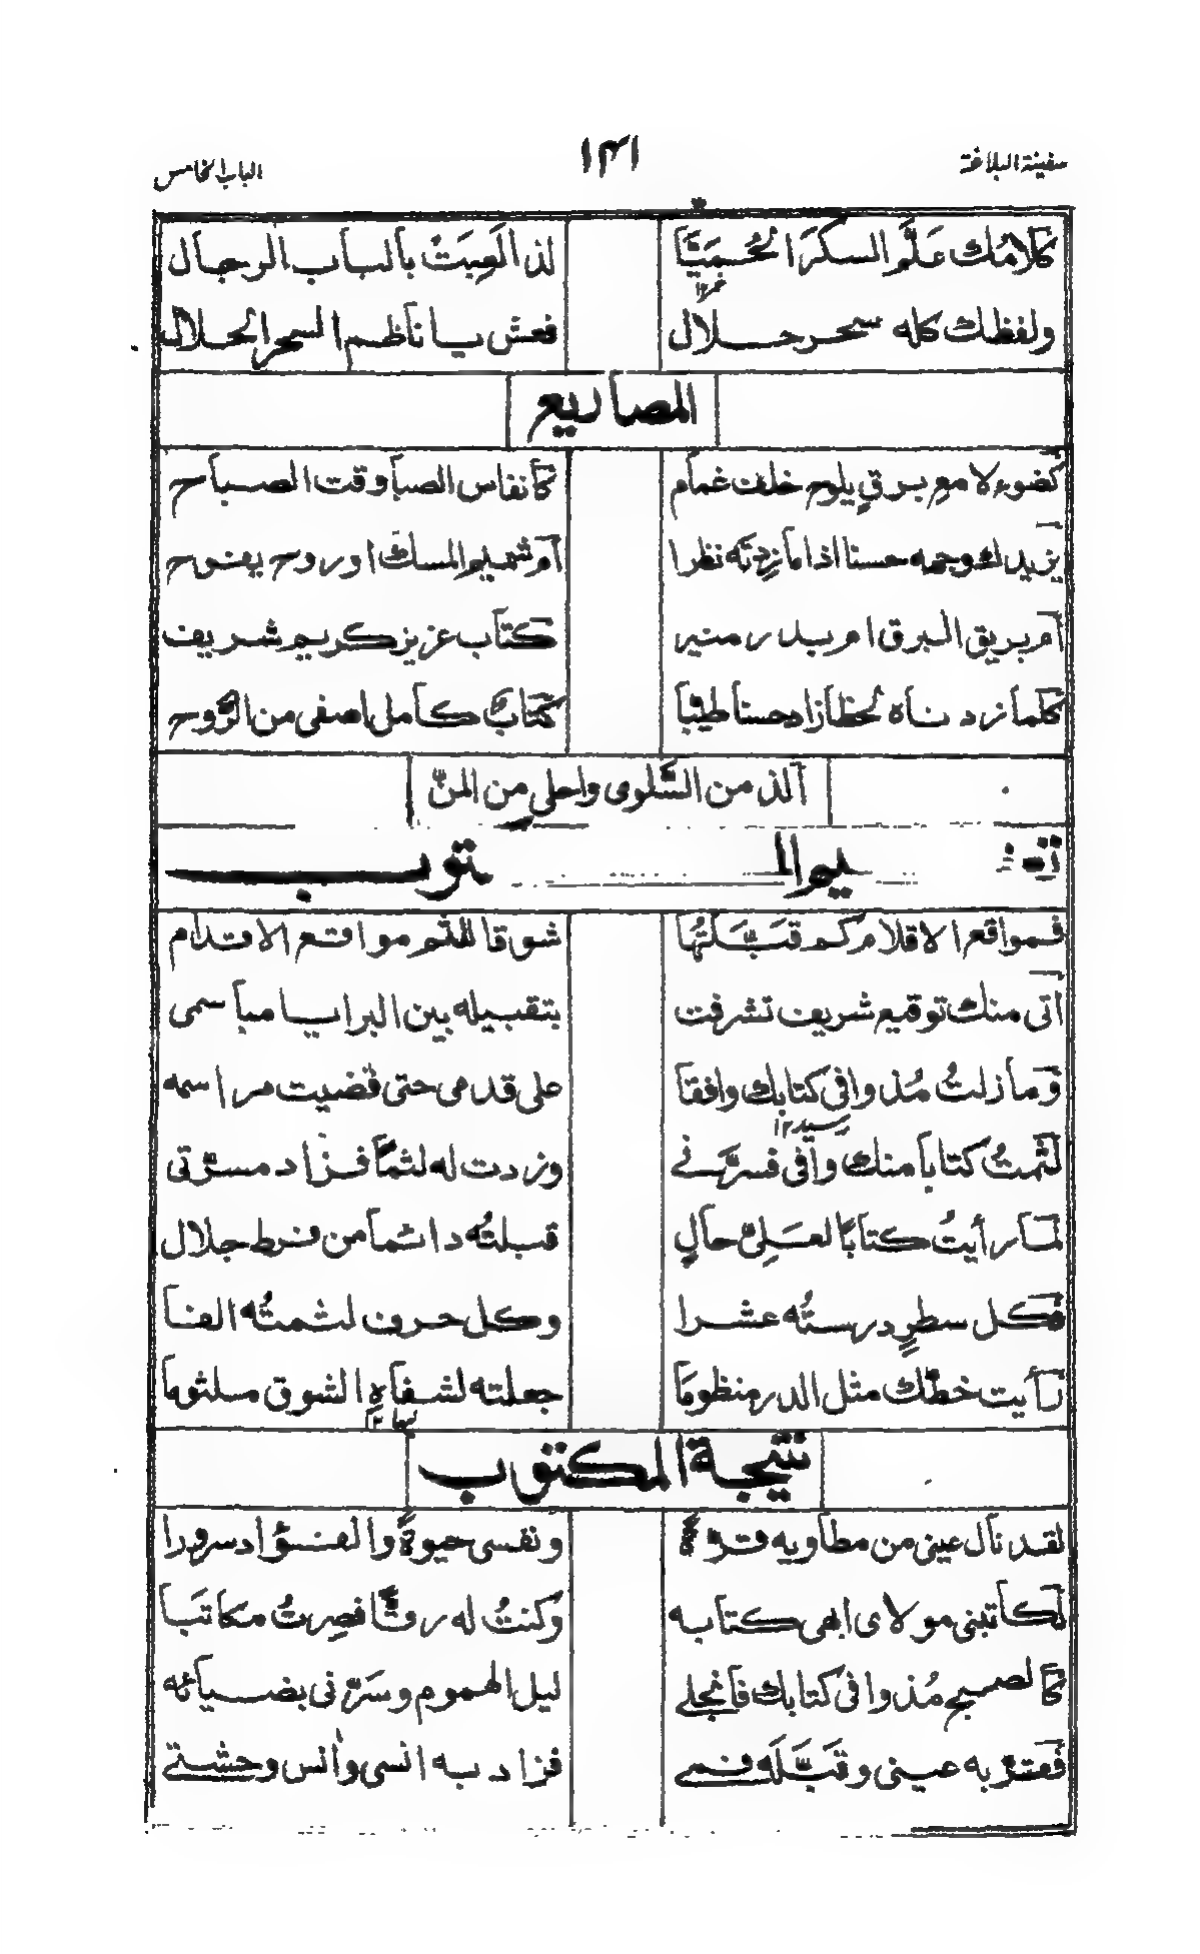 سفينة البلاغة ١٤١ الباب الخامس
كلامك علَّم السكرَ الحُميَّا لذا لعِبَتْ بألباب الرجال
خمر١٢
ولفظك كله سحر حلال فعش يا ناظم السحر الحلال
المصاريع
كضوء لامعِ برقٍ يلوح خلف غمام كأنفاس الصبا وقت الصباح
يزيدك وجهه حسنا اذا مازِدتَه نظرا أم شميم المسك اوروح يفوح
أم بريق البرق ام بدر منير كتاب عزيز كريم شريف
كلما زدناه لحظا زاد حسنا طيبا كتابٌ كامل اصفى من الرُّوح
ألذ من السَّلوى واحلى من المنّ
توب
فمواقع الاقلام كم قبَّلتُها شوقا للثم مواقع الاقدام
أتى منك توقيع شريف تشرفت بتقبيله بين البرايا مباسمى
وما زلتُ مُذ وافى كتابك واقفا على قدمى حتى قضيت مراسمه
رسيد١٢
لثمتُ كتابا منك وافى فسرَّنے وزدت له لثمًا فزاد مسرّتى
لما رأيتُ كتابًا لعلىّ حالٍ قبلتُه دائما من فرط جلال
فكل سطرٍ درستُه عشرا وكل حرف لثمتُه الفا
رأيت خطّك مثل الدر منظوما جعلته لشفاهِ الشوق ملثوما
لبها ١٢
نتيجة المكتوب
لقد نال عينى من مطاويه قرةً ونفسى حيوةً والفؤاد سرورا
لكاتبنى مولاى ابهى كتابه وكنتُ له رقًّا فصِرتُ مكاتبا
كالصبح مُذ وافى كتابك فانجلے ليل الهموم وسَرّنى بضيائه
فقرّ به عينى وقبَّلَه فمے فزاد به انسى وأنس وحشتے